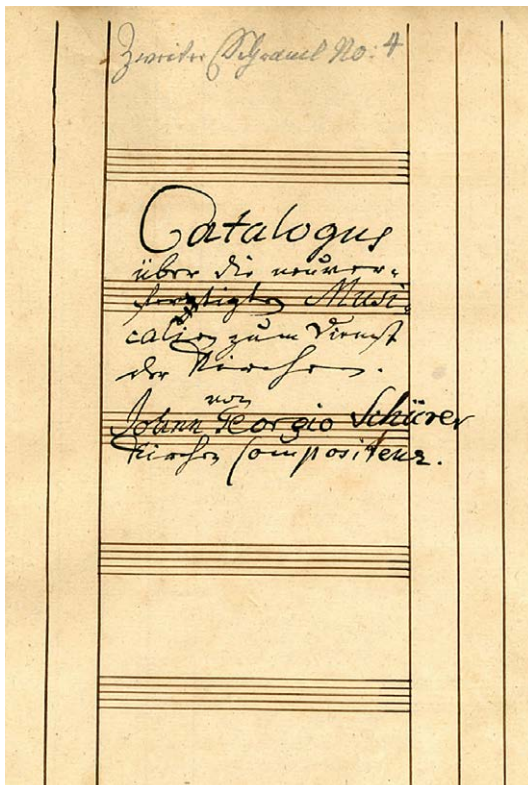 Zweiter Schranck No: 4
Catalogus
über die neuver-
fertigten Musi-
calien zum Dienst
der Kirchen.
von
Johann Georgio Schürer
Kirchen Compositeur.